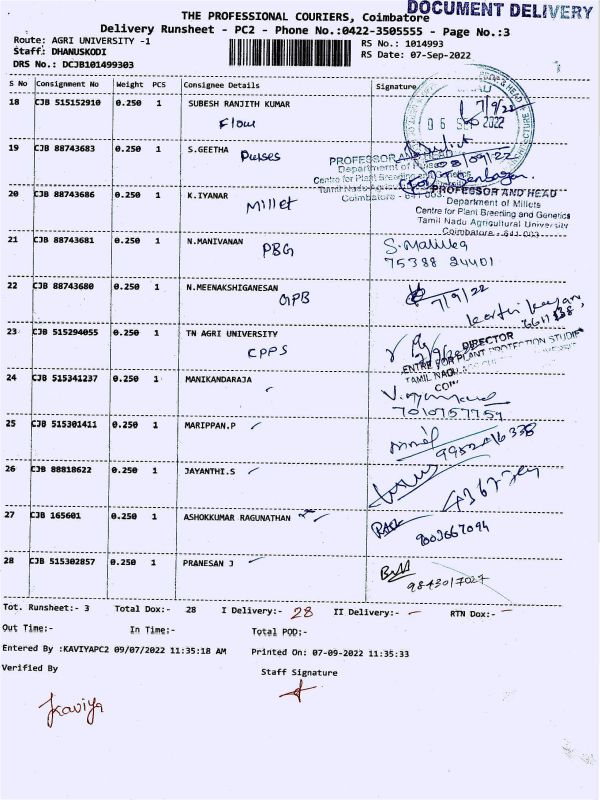 DOCUMENT DELIVERY
THE PROFESSIONAL COURIERS, Coimbatore
Delivery Runsheet - PC2 - Phone No.:0422-3505555 - Page No.:3
Route: AGRI UNIVERSITY -1
RS No.: 1014993
Staff: DHANUSKODI
RS Date: 07-Sep-2022
DRS No.: DCJB101499303
S No Consignment No Weight PCS Consignee Details Signature
18 CJB 515152910 0.250 1 SUBESH RANJITH KUMAR
Flow 7/9/22
06 SEP 2022
19 CJB 88743683 0.250 1 S.GEETHA
Pulses 08/09/22
PROFESSOR AND HEAD
Department of Pulses
Centre for Plant Breeding and Genetics
Tamil Nadu Agricultural University
Coimbatore - 641 003.
20 CJB 88743686 0.250 1 K.IYANAR
Millet
PROFESSOR AND HEAD
Department of Millets
Centre for Plant Breeding and Genetics
Tamil Nadu Agricultural University
Coimbatore - 641 003
21 CJB 88743681 0.250 1 N.MANIVANAN
PBG S. Mallika
75388 24401
22 CJB 88743680 0.250 1 N.MEENAKSHIGANESAN
GPB 7/9/22
23 CJB 515294055 0.250 1 TN AGRI UNIVERSITY
CPPS
DIRECTOR
CENTRE FOR PLANT PROTECTION STUDIES
TAMIL NADU
24 CJB 515341237 0.250 1 MANIKANDARAJA
7010757757
25 CJB 515301411 0.250 1 MARIPPAN.P
26 CJB 88818622 0.250 1 JAYANTHI.S
27 CJB 165601 0.250 1 ASHOKKUMAR RAGUNATHAN
9003667094
28 CJB 515302857 0.250 1 PRANESAN J
9843017027
Tot. Runsheet:- 3 Total Dox:- 28 I Delivery:- 28 II Delivery:- - RTN Dox:- -
Out Time:- In Time:- Total POD:-
Entered By :KAVIYAPC2 09/07/2022 11:35:18 AM Printed On: 07-09-2022 11:35:33
Verified By Staff Signature
Kaviya